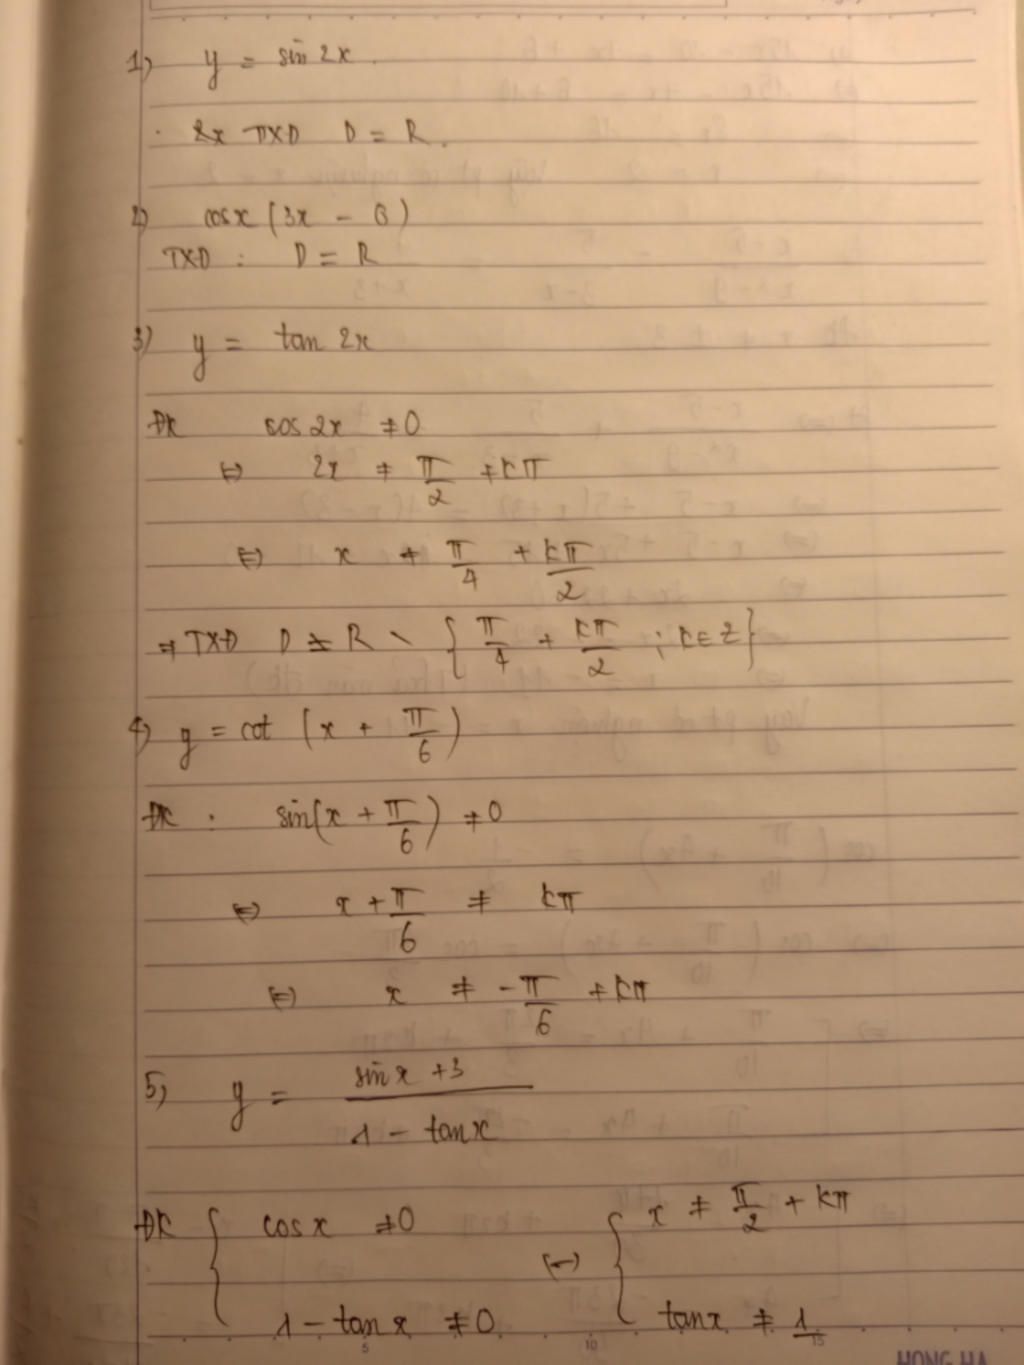 1) y = sin 2x.
2x TXD D = R.
2) cosx (3x - 6)
TXD : D = R
3) y = tan 2x
ĐK cos 2x ≠ 0
⇔ 2x ≠ π/2 + kπ
⇔ x ≠ π/4 + kπ/2
⇒ TXD D = R \ { π/4 + kπ/2 ; k ∈ Z }
4) y = cot (x + π/6)
ĐK : sin(x + π/6) ≠ 0
⇔ x + π/6 ≠ kπ
⇔ x ≠ -π/6 + kπ
5) y = (sin x + 3)/(1 - tan x)
ĐK { cos x ≠ 0 ⇔ { x ≠ π/2 + kπ
1 - tan x ≠ 0 tan x ≠ 1
5 10 15
HONG HA